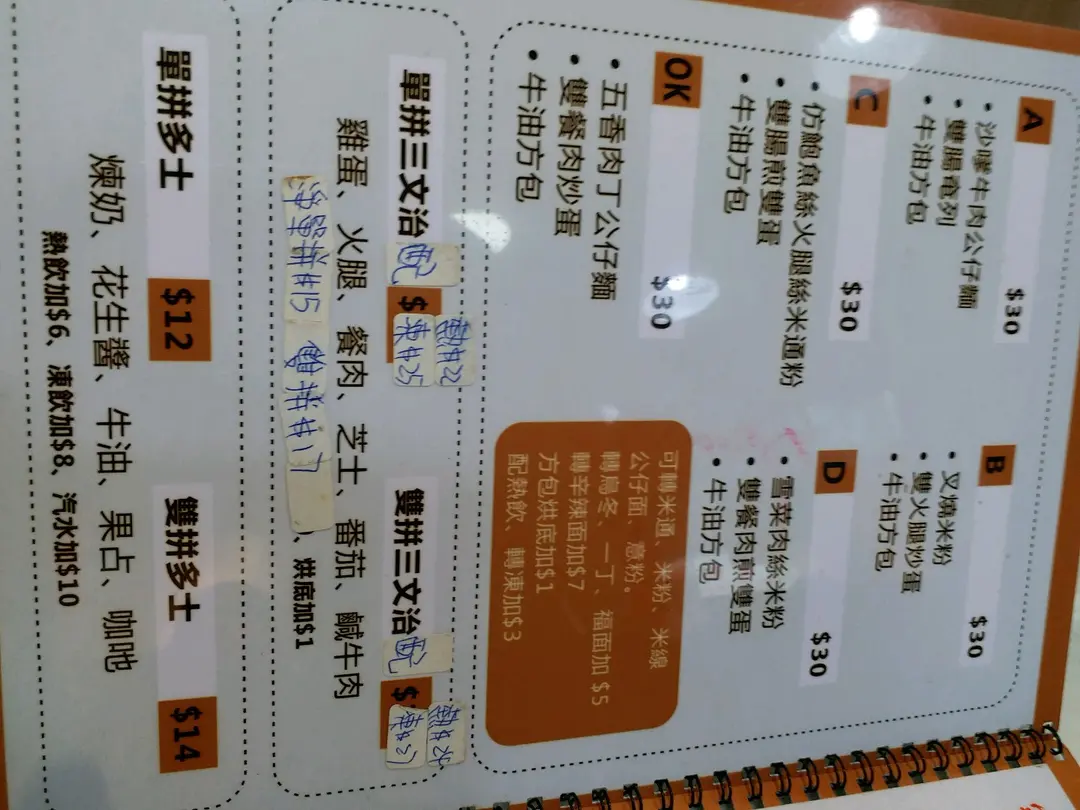 A
$30
• 沙嗲牛肉公仔麵
• 雙腸奄列
• 牛油方包
B
$30
• 叉燒米粉
• 雙火腿炒蛋
• 牛油方包
C
$30
• 仿鮑魚絲火腿絲米通粉
• 雙腸煎雙蛋
• 牛油方包
D
$30
• 雪菜肉絲米粉
• 雙餐肉煎雙蛋
• 牛油方包
OK
$30
• 五香肉丁公仔麵
• 雙餐肉炒蛋
• 牛油方包
可轉米通、米粉、米線
公仔面、意粉。
轉烏冬、一丁、福面加 $5
轉辛辣面加$7
方包烘底加$1
配熱飲、轉凍加$3
單拼三文治 配 $
熱$22
凍$25
雙拼三文治 配 $
熱$24
凍$27
雞蛋、火腿、餐肉、芝士、番茄、鹹牛肉
淨單拼$15 雙拼$17 、烘底加$1
單拼多士 $12
雙拼多士 $14
煉奶、花生醬、牛油、果占、咖吔
熱飲加$6、凍飲加$8、汽水加$10